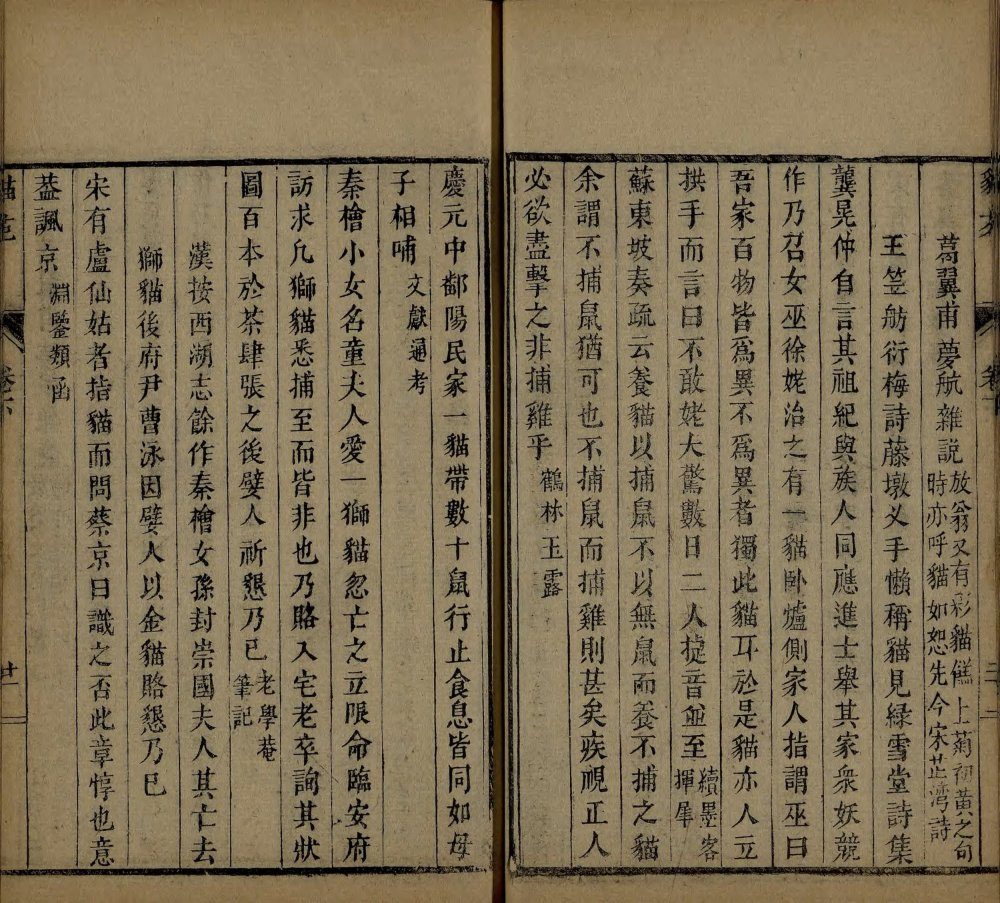 葛翼甫夢航雜說放翁又有彩貓糕上菊初黃之句
時亦呼貓如恕先今宋芷灣詩
王笠舫衍梅詩藤墩义手懶稱貓見綠雪堂詩集
龔晃仲自言其祖紀與族人同應進士舉其家衆妖競
作乃召女巫徐姥治之有一貓臥爐側家人指謂巫曰
吾家百物皆爲異不爲異者獨此貓耳於是貓亦人立
拱手而言曰不敢姥大驚數日二人捷音並至續墨客
揮犀
蘇東坡奏疏云養貓以捕鼠不以無鼠而養不捕之貓
余謂不捕鼠猶可也不捕鼠而捕雞則甚矣疾視正人
必欲盡擊之非捕雞乎鶴林玉露
慶元中鄱陽民家一貓帶數十鼠行止食息皆同如母
子相哺文獻通考
秦檜小女名童夫人愛一獅貓忽亡之立限命臨安府
訪求凡獅貓悉捕至而皆非也乃賂入宅老卒詢其狀
圖百本於茶肆張之後嬖人祈懇乃已老學菴
筆記
漢按西湖志餘作秦檜女孫封崇國夫人其亡去
獅貓後府尹曹泳因嬖人以金貓賂懇乃已
宋有盧仙姑者指貓而問蔡京曰識之否此章惇也意
葢諷京淵鑒類函
卷六
廿一